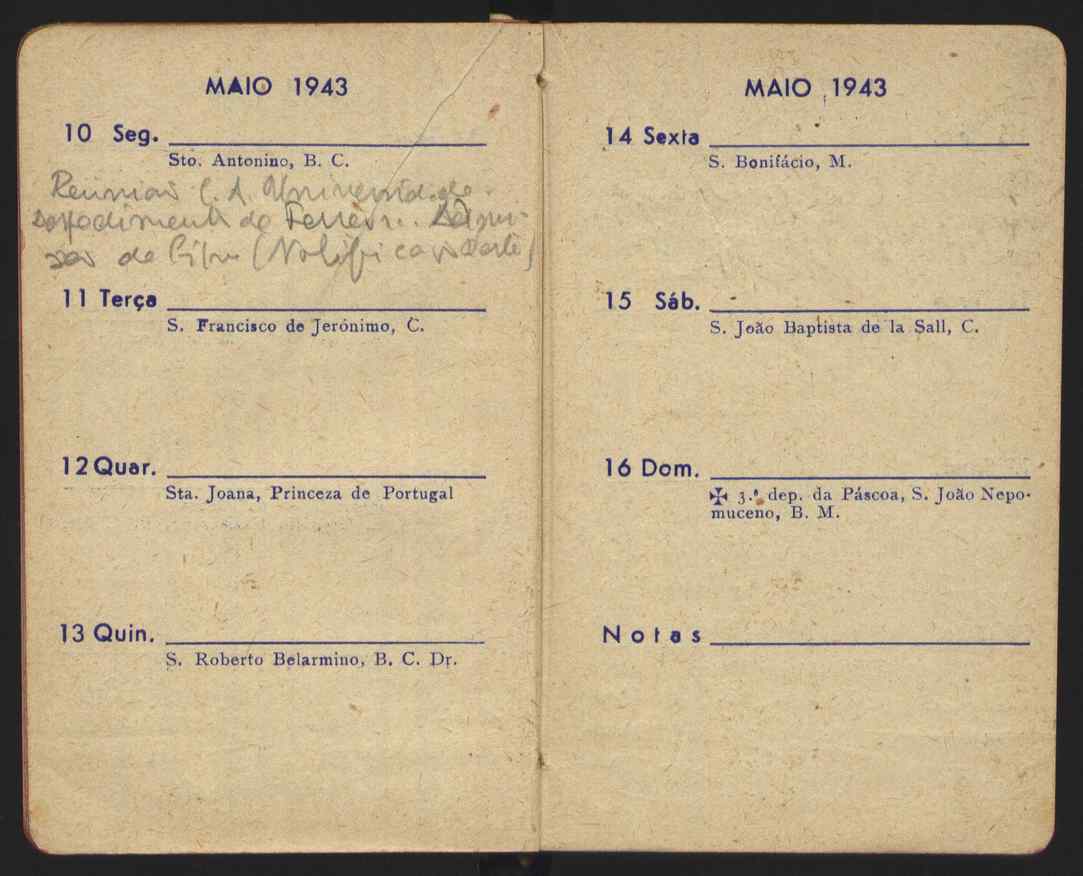 MAIO 1943
10 Seg.
Sto. Antonino, B. C.
Reunião C. A. Universidade.
do Ferreira.
de (Notificar
11 Terça
S. Francisco de Jerónimo, C.
12 Quar.
Sta. Joana, Princeza de Portugal
13 Quin.
S. Roberto Belarmino, B. C. Dr.
MAIO 1943
14 Sexta
S. Bonifácio, M.
15 Sáb.
S. João Baptista de la Sall, C.
16 Dom.
✠ 3.º dep. da Páscoa, S. João Nepo-
muceno, B. M.
Notas